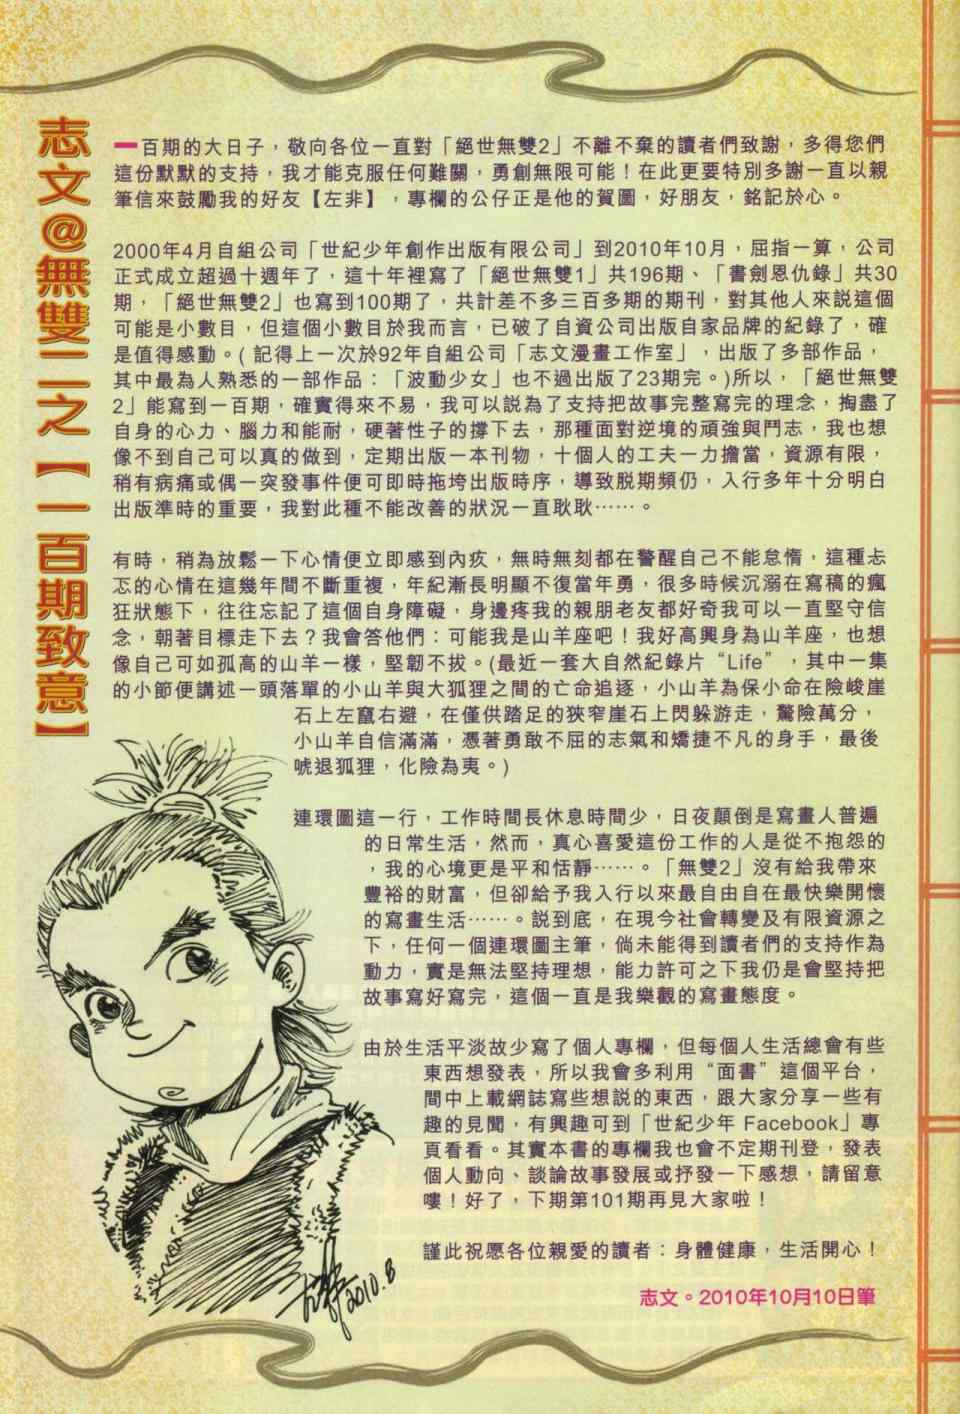 志文@無雙二之【一百期致意】
一百期的大日子，敬向各位一直對「絕世無雙2」不離不棄的讀者們致謝，多得您們
這份默默的支持，我才能克服任何難關，勇創無限可能！在此更要特別多謝一直以親
筆信來鼓勵我的好友【左非】，專欄的公仔正是他的賀圖，好朋友，銘記於心。
2000年4月自組公司「世紀少年創作出版有限公司」到2010年10月，屈指一算，公司
正式成立超過十週年了，這十年裡寫了「絕世無雙1」共196期、「書劍恩仇錄」共30
期，「絕世無雙2」也寫到100期了，共計差不多三百多期的期刊，對其他人來説這個
可能是小數目，但這個小數目於我而言，已破了自資公司出版自家品牌的紀錄了，確
是值得感動。( 記得上一次於92年自組公司「志文漫畫工作室」，出版了多部作品，
其中最為人熟悉的一部作品：「波動少女」也不過出版了23期完。)所以，「絕世無雙
2」能寫到一百期，確實得來不易，我可以説為了支持把故事完整寫完的理念，掏盡了
自身的心力、腦力和能耐，硬著性子的撐下去，那種面對逆境的頑強與鬥志，我也想
像不到自己可以真的做到，定期出版一本刊物，十個人的工夫一力擔當，資源有限，
稍有病痛或偶一突發事件便可即時拖垮出版時序，導致脱期頻仍，入行多年十分明白
出版準時的重要，我對此種不能改善的狀況一直耿耿……。
有時，稍為放鬆一下心情便立即感到內疚，無時無刻都在警醒自己不能怠惰，這種忐
忑的心情在這幾年間不斷重複，年紀漸長明顯不復當年勇，很多時候沉溺在寫稿的瘋
狂狀態下，往往忘記了這個自身障礙，身邊疼我的親朋老友都好奇我可以一直堅守信
念，朝著目標走下去？我會答他們：可能我是山羊座吧！我好高興身為山羊座，也想
像自己可如孤高的山羊一樣，堅韌不拔。(最近一套大自然紀錄片“Life”，其中一集
的小節便講述一頭落單的小山羊與大狐狸之間的亡命追逐，小山羊為保小命在險峻崖
石上左竄右避，在僅供踏足的狹窄崖石上閃躲游走，驚險萬分，
小山羊自信滿滿，憑著勇敢不屈的志氣和矯捷不凡的身手，最後
唬退狐狸，化險為夷。)
連環圖這一行，工作時間長休息時間少，日夜顛倒是寫畫人普遍
的日常生活，然而，真心喜愛這份工作的人是從不抱怨的
，我的心境更是平和恬靜……。「無雙2」沒有給我帶來
豐裕的財富，但卻給予我入行以來最自由自在最快樂開懷
的寫畫生活……。説到底，在現今社會轉變及有限資源之
下，任何一個連環圖主筆，倘未能得到讀者們的支持作為
動力，實是無法堅持理想，能力許可之下我仍是會堅持把
故事寫好寫完，這個一直是我樂觀的寫畫態度。
由於生活平淡故少寫了個人專欄，但每個人生活總會有些
東西想發表，所以我會多利用“面書”這個平台，
間中上載網誌寫些想說的東西，跟大家分享一些有
趣的見聞，有興趣可到「世紀少年 Facebook」專
頁看看。其實本書的專欄我也會不定期刊登，發表
個人動向、談論故事發展或抒發一下感想，請留意
嘍！好了，下期第101期再見大家啦！
謹此祝愿各位親愛的讀者：身體健康，生活開心！
志文。2010年10月10日筆
2010.8